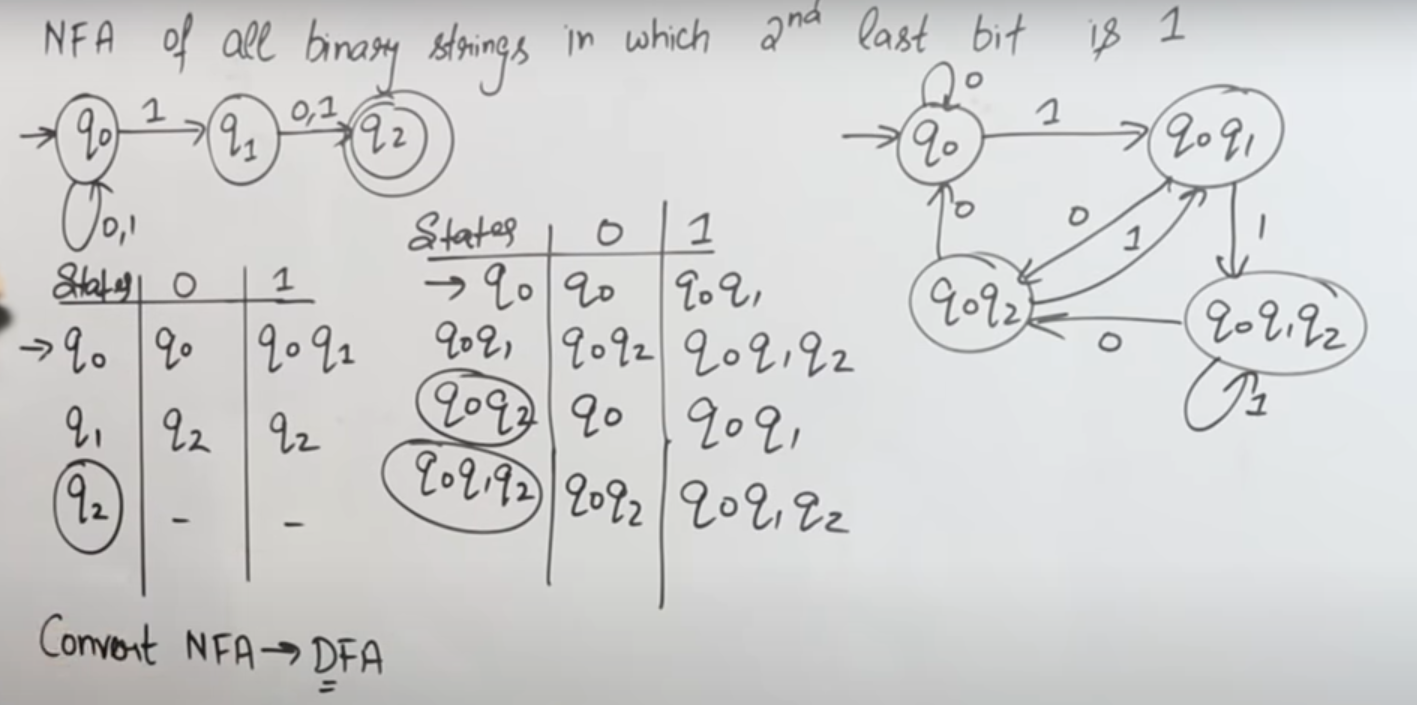 NFA of all binary strings in which 2nd last bit is 1
→ q0 1 q1 0,1 q2
0,1
States 0 1
→ q0 q0 q0 q1
q1 q2 q2
q2 - -
Convert NFA → DFA
States 0 1
→ q0 q0 q0q1
q0q1 q0q2 q0q1q2
q0q2 q0 q0q1
q0q1q2 q0q2 q0q1q2
0
q0 1 q0q1
0 0 1 1
q0q2 0 q0q1q2
1